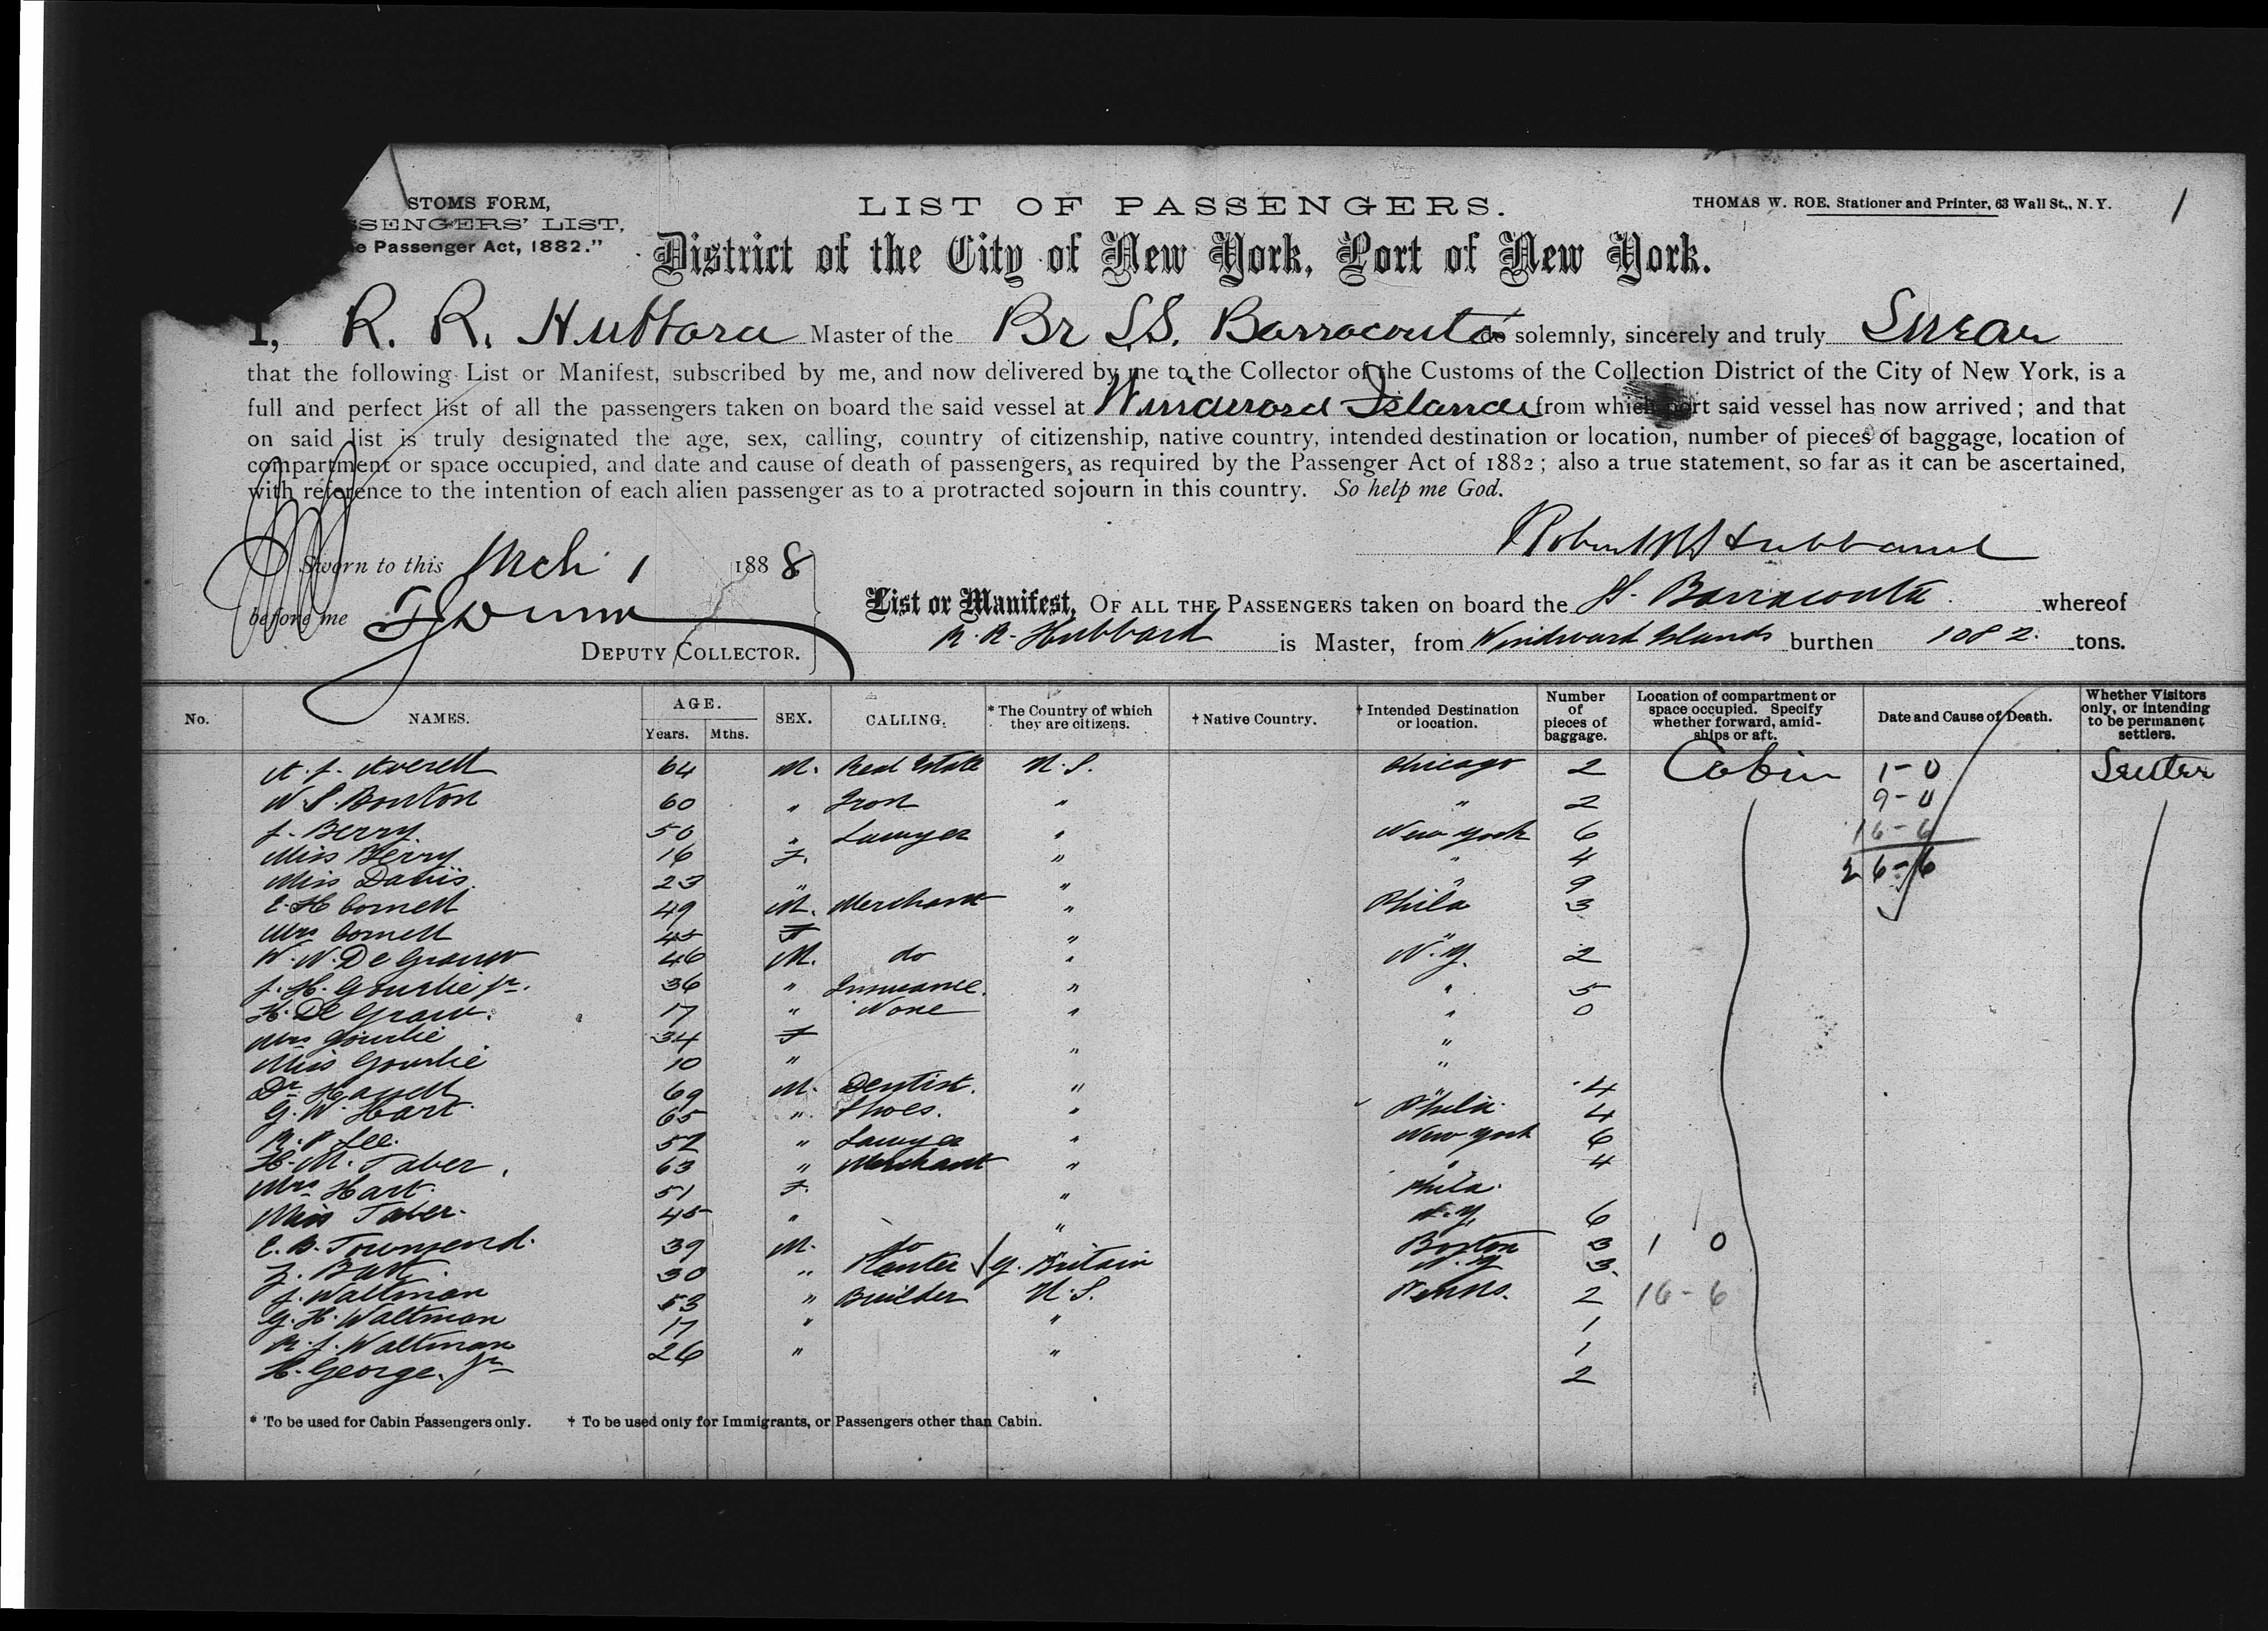 STOMS FORM,
SSENGERS' LIST,
e Passenger Act, 1882."
LIST OF PASSENGERS.
THOMAS W. ROE, Stationer and Printer, 63 Wall St., N. Y.
1
District of the City of New York, Port of New York.
I, R. R. Hubbard Master of the Br SS. Barracouta do solemnly, sincerely and truly Swear
that the following List or Manifest, subscribed by me, and now delivered by me to the Collector of the Customs of the Collection District of the City of New York, is a
full and perfect list of all the passengers taken on board the said vessel at Windward Islands from which port said vessel has now arrived; and that
on said list is truly designated the age, sex, calling, country of citizenship, native country, intended destination or location, number of pieces of baggage, location of
compartment or space occupied, and date and cause of death of passengers, as required by the Passenger Act of 1882; also a true statement, so far as it can be ascertained,
with reference to the intention of each alien passenger as to a protracted sojourn in this country. So help me God.
Robert R Hubbard
Sworn to this Mch 1 1888
before me
DEPUTY COLLECTOR.
List or Manifest, OF ALL THE PASSENGERS taken on board the Barracouta whereof
R. R. Hubbard is Master, from Windward Islands burthen 1082 tons.
No. NAMES. AGE. Years. Mths. SEX. CALLING. * The Country of which they are citizens. † Native Country. † Intended Destination or location. Number of pieces of baggage. Location of compartment or space occupied. Specify whether forward, amidships or aft. Date and Cause of Death. Whether Visitors only, or intending to be permanent settlers.
A. J. Averell 64 M. Real Estate U.S. Chicago 2 Cabin 1-0
W. S. Bonton 60 " Iron " " 2 9-0
J. Berry 50 " Lawyer " New York 6 16-6
Miss Berry 16 F. " " 4 26-6
Miss Davis 23 " " " 9
E. H Cornell 49 M. Merchant " Phila 3
Mrs Cornell 45 F " "
W. W. De Grauw 46 M. do " N.Y. 2
J. H. Gourlie Jr. 36 " Insurance " " 5
H. De Grauw 17 " None " " 0
Mrs Gourlie 34 F "
Miss Gourlie 10 " " "
Dr 69 M. Dentist. " " 4
G. W. Hart 65 " Shoes. " Phila 4
R. P. Lee 52 " Lawyer " New York 6
H. M. Taber 63 " Merchant " " 4
Mrs Hart 51 F. " Phila.
Miss Taber 45 " " N.Y. 6
E. B. Townsend 39 M. do Boston 3 1 0
30 " Planter G. Britain N.Y. 3
J. Waltman 53 " Builder U.S. Penna. 2 16-6
G. H. Waltman 17 " " 1
R. J. Waltman 26 " " 1
H. George Jr 2
* To be used for Cabin Passengers only. † To be used only for Immigrants, or Passengers other than Cabin.